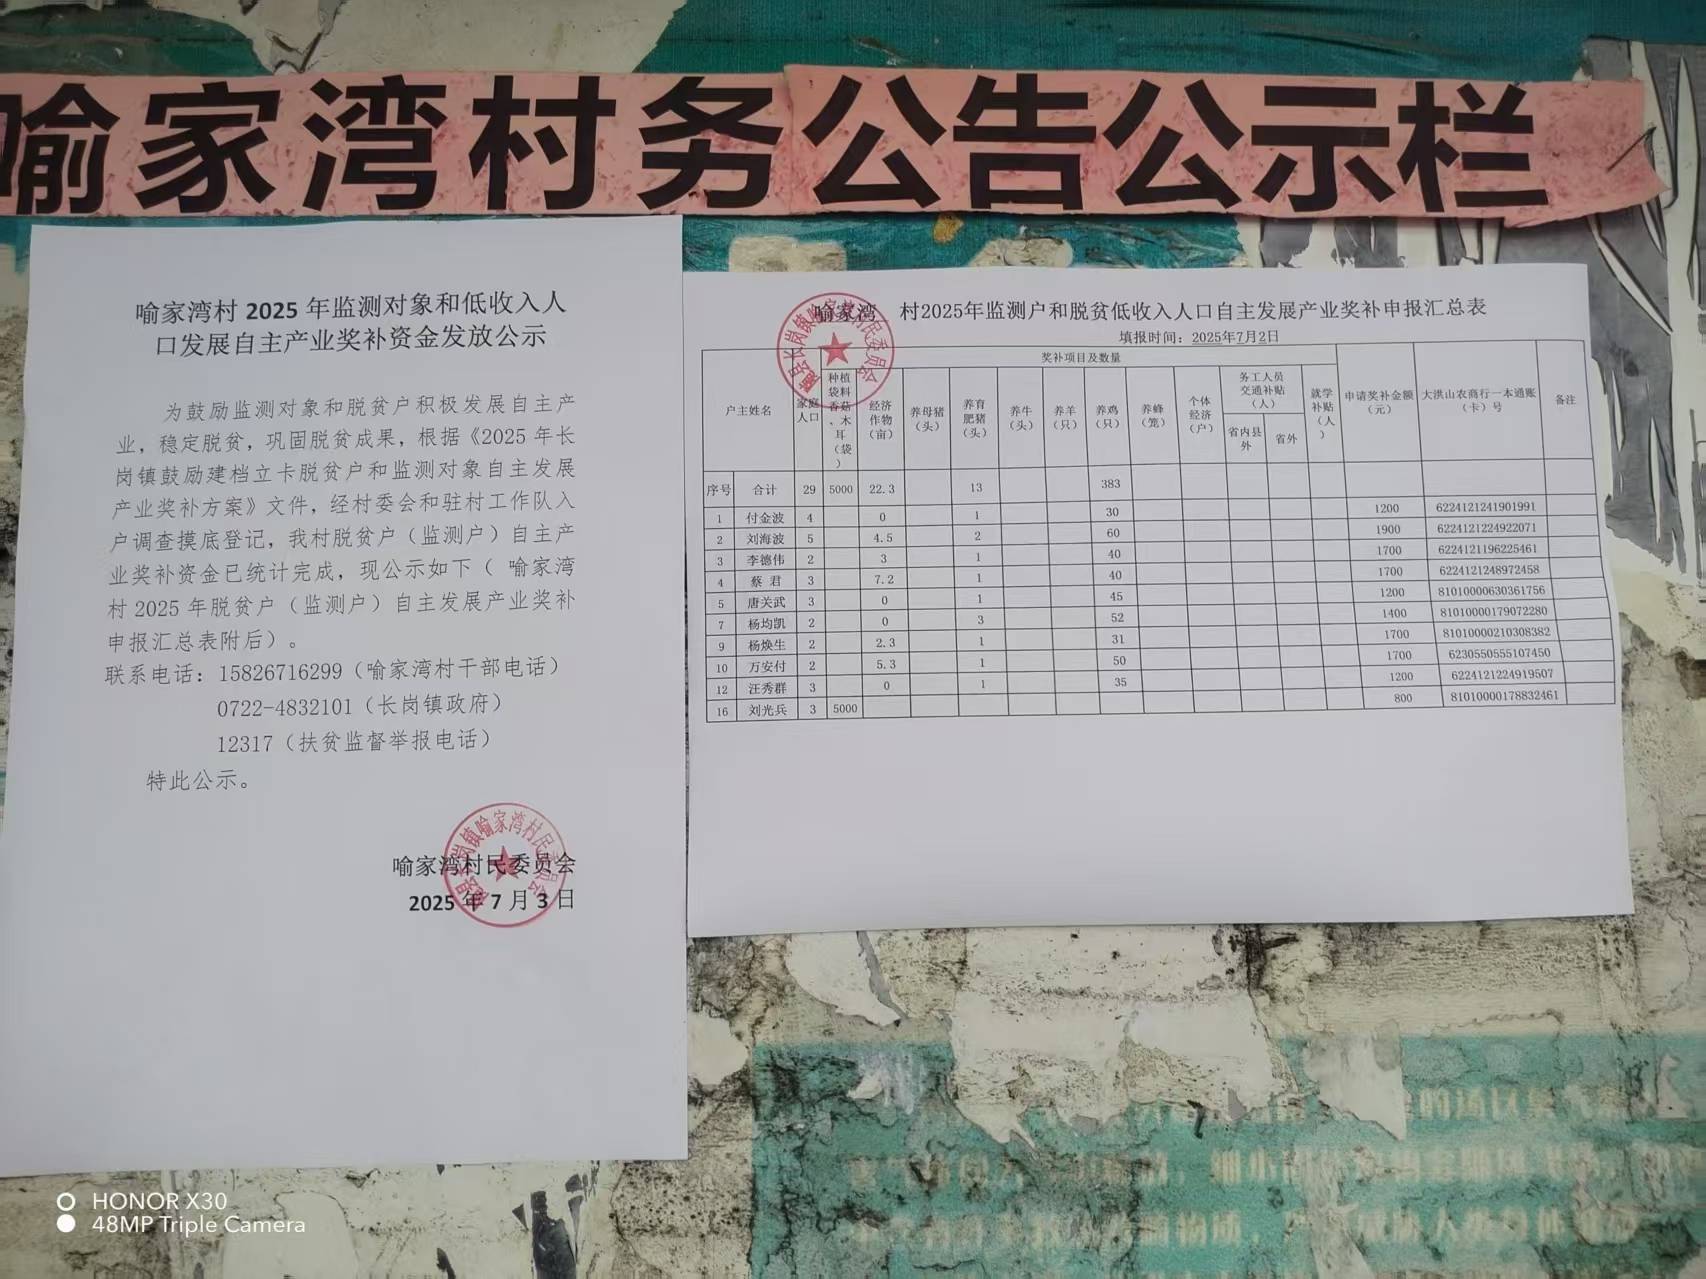 喻家湾村务公告公示栏
喻家湾村 2025 年监测对象和低收入人
口发展自主产业奖补资金发放公示
为鼓励监测对象和脱贫户积极发展自主产
业，稳定脱贫，巩固脱贫成果，根据《2025 年长
岗镇鼓励建档立卡脱贫户和监测对象自主发展
产业奖补方案》文件，经村委会和驻村工作队入
户调查摸底登记，我村脱贫户（监测户）自主产
业奖补资金已统计完成，现公示如下（ 喻家湾
村 2025 年脱贫户（监测户）自主发展产业奖补
申报汇总表附后）。
联系电话：15826716299（喻家湾村干部电话）
0722-4832101（长岗镇政府）
12317（扶贫监督举报电话）
特此公示。
喻家湾村民委员会
2025 年 7 月 3 日
喻家湾 村2025年监测户和脱贫低收入人口自主发展产业奖补申报汇总表
填报时间：2025年7月2日
户主姓名 家庭人口 奖补项目及数量 申请奖补金额（元） 大洪山农商行一本通账（卡）号 备注
种植袋料香菇、木耳（袋） 经济作物（亩） 养母猪（头） 养育肥猪（头） 养牛（头） 养羊（只） 养鸡（只） 养蜂（笼） 个体经济（户） 务工人员交通补贴（人） 就学补贴（人）
省内县外 省外
序号 合计 29 5000 22.3 13 383
1 付金波 4 0 1 30 1200 6224121241901991
2 刘海波 5 4.5 2 60 1900 6224121224922071
3 李德伟 2 3 1 40 1700 6224121196225461
4 蔡 君 3 7.2 1 40 1700 6224121248972458
5 唐关武 3 0 1 45 1200 81010000630361756
7 杨均凯 2 0 3 52 1400 81010000179072280
9 杨焕生 2 2.3 1 31 1700 81010000210308382
10 万安付 2 5.3 1 50 1700 6230550555107450
12 汪秀群 3 0 1 35 1200 6224121224919507
16 刘光兵 3 5000 800 81010000178832461
HONOR X30
48MP Triple Camera